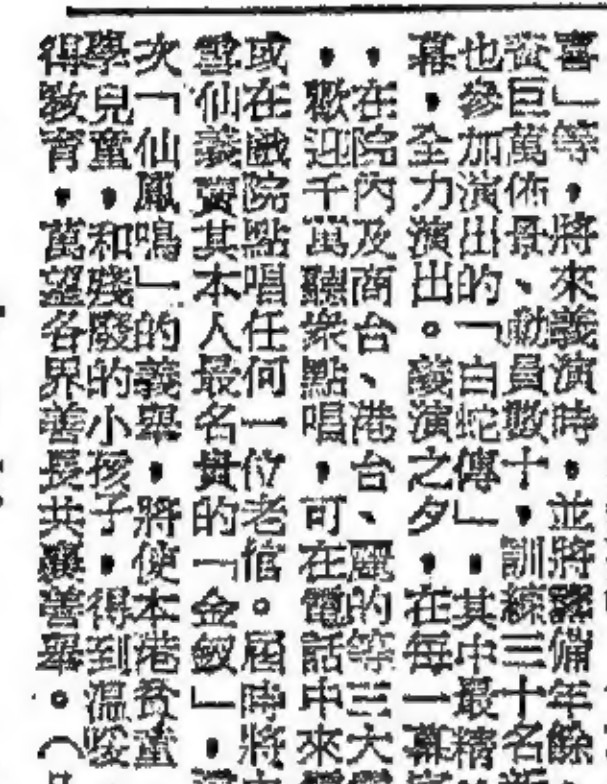 喜」等，將來義演時，並將籌備年餘
蚕巨萬佈景、動員數十，訓練三十名
也參加演出的「白蛇傳」，其中最精
幕，全力演出。義演之夕，在每一幕
，在院內及商台、港台、麗的等三大
，歡迎千萬聽眾點唱，可在電話中來
或在戲院點唱任何一位老倌。屆時將
雪仙義賣其本人最名貴的「金釵」，
次「仙鳳鳴」的義舉，將使本港貧童
學兒童，和殘廢的小孩子，得到溫暖
得敎育，萬望各界善長共襄善舉。（